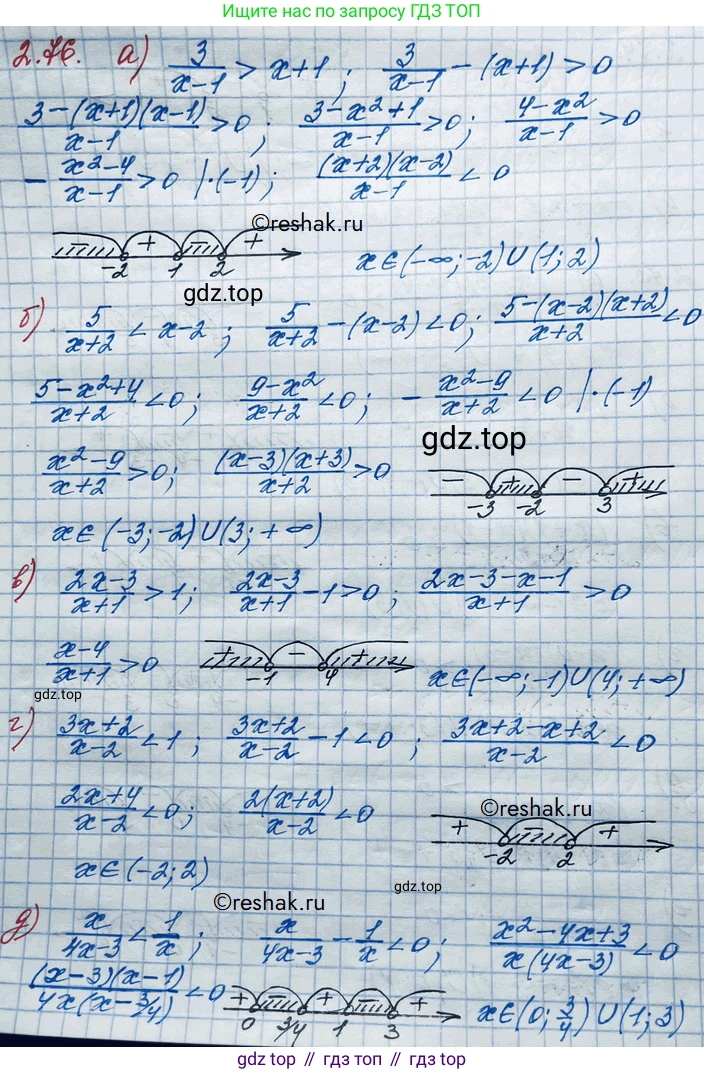 Ищите нас по запросу ГДЗ ТОП
2.76. а) 3/(x-1) > x+1; 3/(x-1) - (x+1) > 0
(3-(x+1)(x-1))/(x-1) > 0; (3-x²+1)/(x-1) > 0; (4-x²)/(x-1) > 0
- (x²-4)/(x-1) > 0 |·(-1); ((x+2)(x-2))/(x-1) < 0
©reshak.ru
- + - +
-2 1 2 x∈(-∞;-2)∪(1;2)
gdz.top
б) 5/(x+2) < x-2; 5/(x+2) - (x-2) < 0; (5-(x-2)(x+2))/(x+2) < 0
(5-x²+4)/(x+2) < 0; (9-x²)/(x+2) < 0; - (x²-9)/(x+2) < 0 |·(-1)
gdz.top
(x²-9)/(x+2) > 0; ((x-3)(x+3))/(x+2) > 0
- + - +
-3 -2 3
x∈(-3;-2)∪(3;+∞)
в) (2x-3)/(x+1) > 1; (2x-3)/(x+1) - 1 > 0; (2x-3-x-1)/(x+1) > 0
(x-4)/(x+1) > 0
+ - +
-1 4 x∈(-∞;-1)∪(4;+∞)
gdz.top
г) (3x+2)/(x-2) < 1; (3x+2)/(x-2) - 1 < 0; (3x+2-x+2)/(x-2) < 0
(2x+4)/(x-2) < 0; (2(x+2))/(x-2) < 0
©reshak.ru
+ - +
-2 2
x∈(-2;2)
gdz.top
©reshak.ru
д) x/(4x-3) < 1/x; x/(4x-3) - 1/x < 0; (x²-4x+3)/(x(4x-3)) < 0
((x-3)(x-1))/(4x(x-3/4)) < 0
+ - + - +
0 3/4 1 3 x∈(0;3/4)∪(1;3)
gdz top // гдз топ // gdz.top